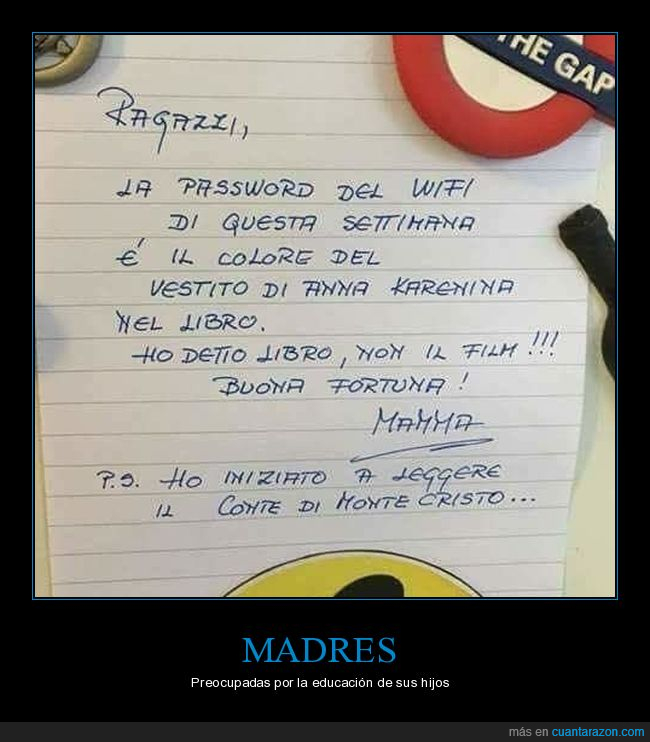 THE GAP
Ragazzi,
LA PASSWORD DEL WIFI
DI QUESTA SETTIMANA
É IL COLORE DEL
VESTITO DI ANNA KARENINA
NEL LIBRO.
HO DETTO LIBRO, NON IL FILM!!!
BUONA FORTUNA!
MAMMA
P.S. HO INIZIATO A LEGGERE
IL CONTE DI MONTECRISTO...
MADRES
Preocupadas por la educación de sus hijos
más en cuantarazon.com